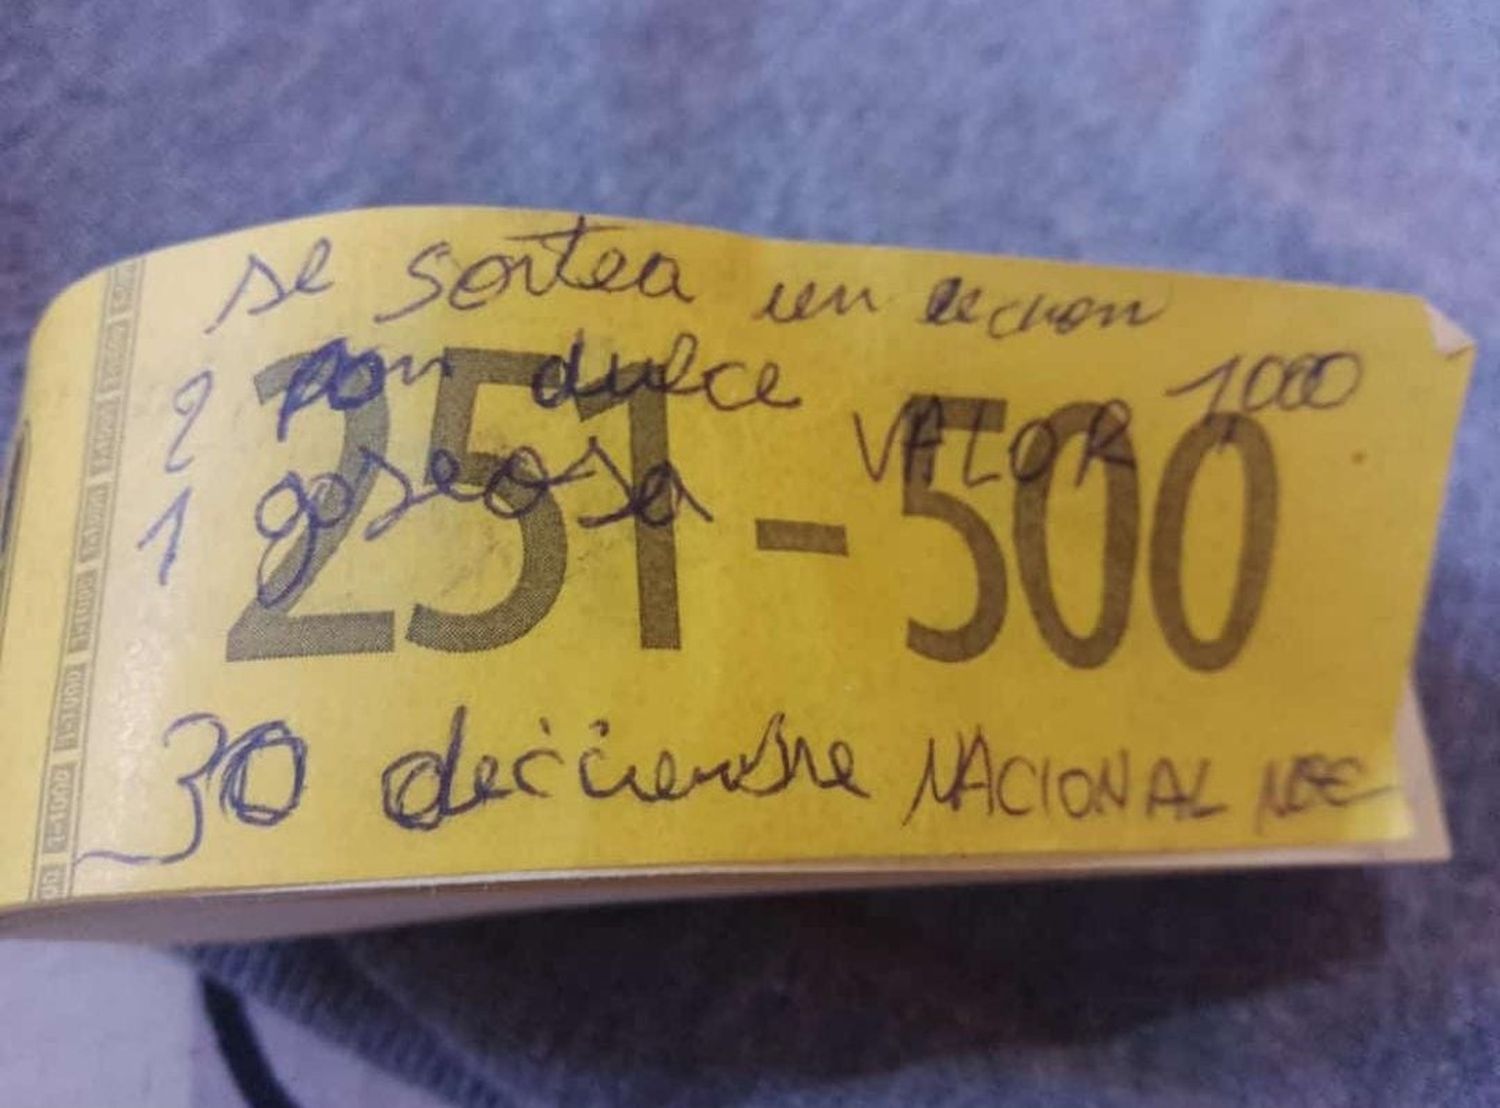 se sortea un lechon
2 pan dulce VALOR 1000
1 gaseosa
251-500
30 deciiembre NACIONAL